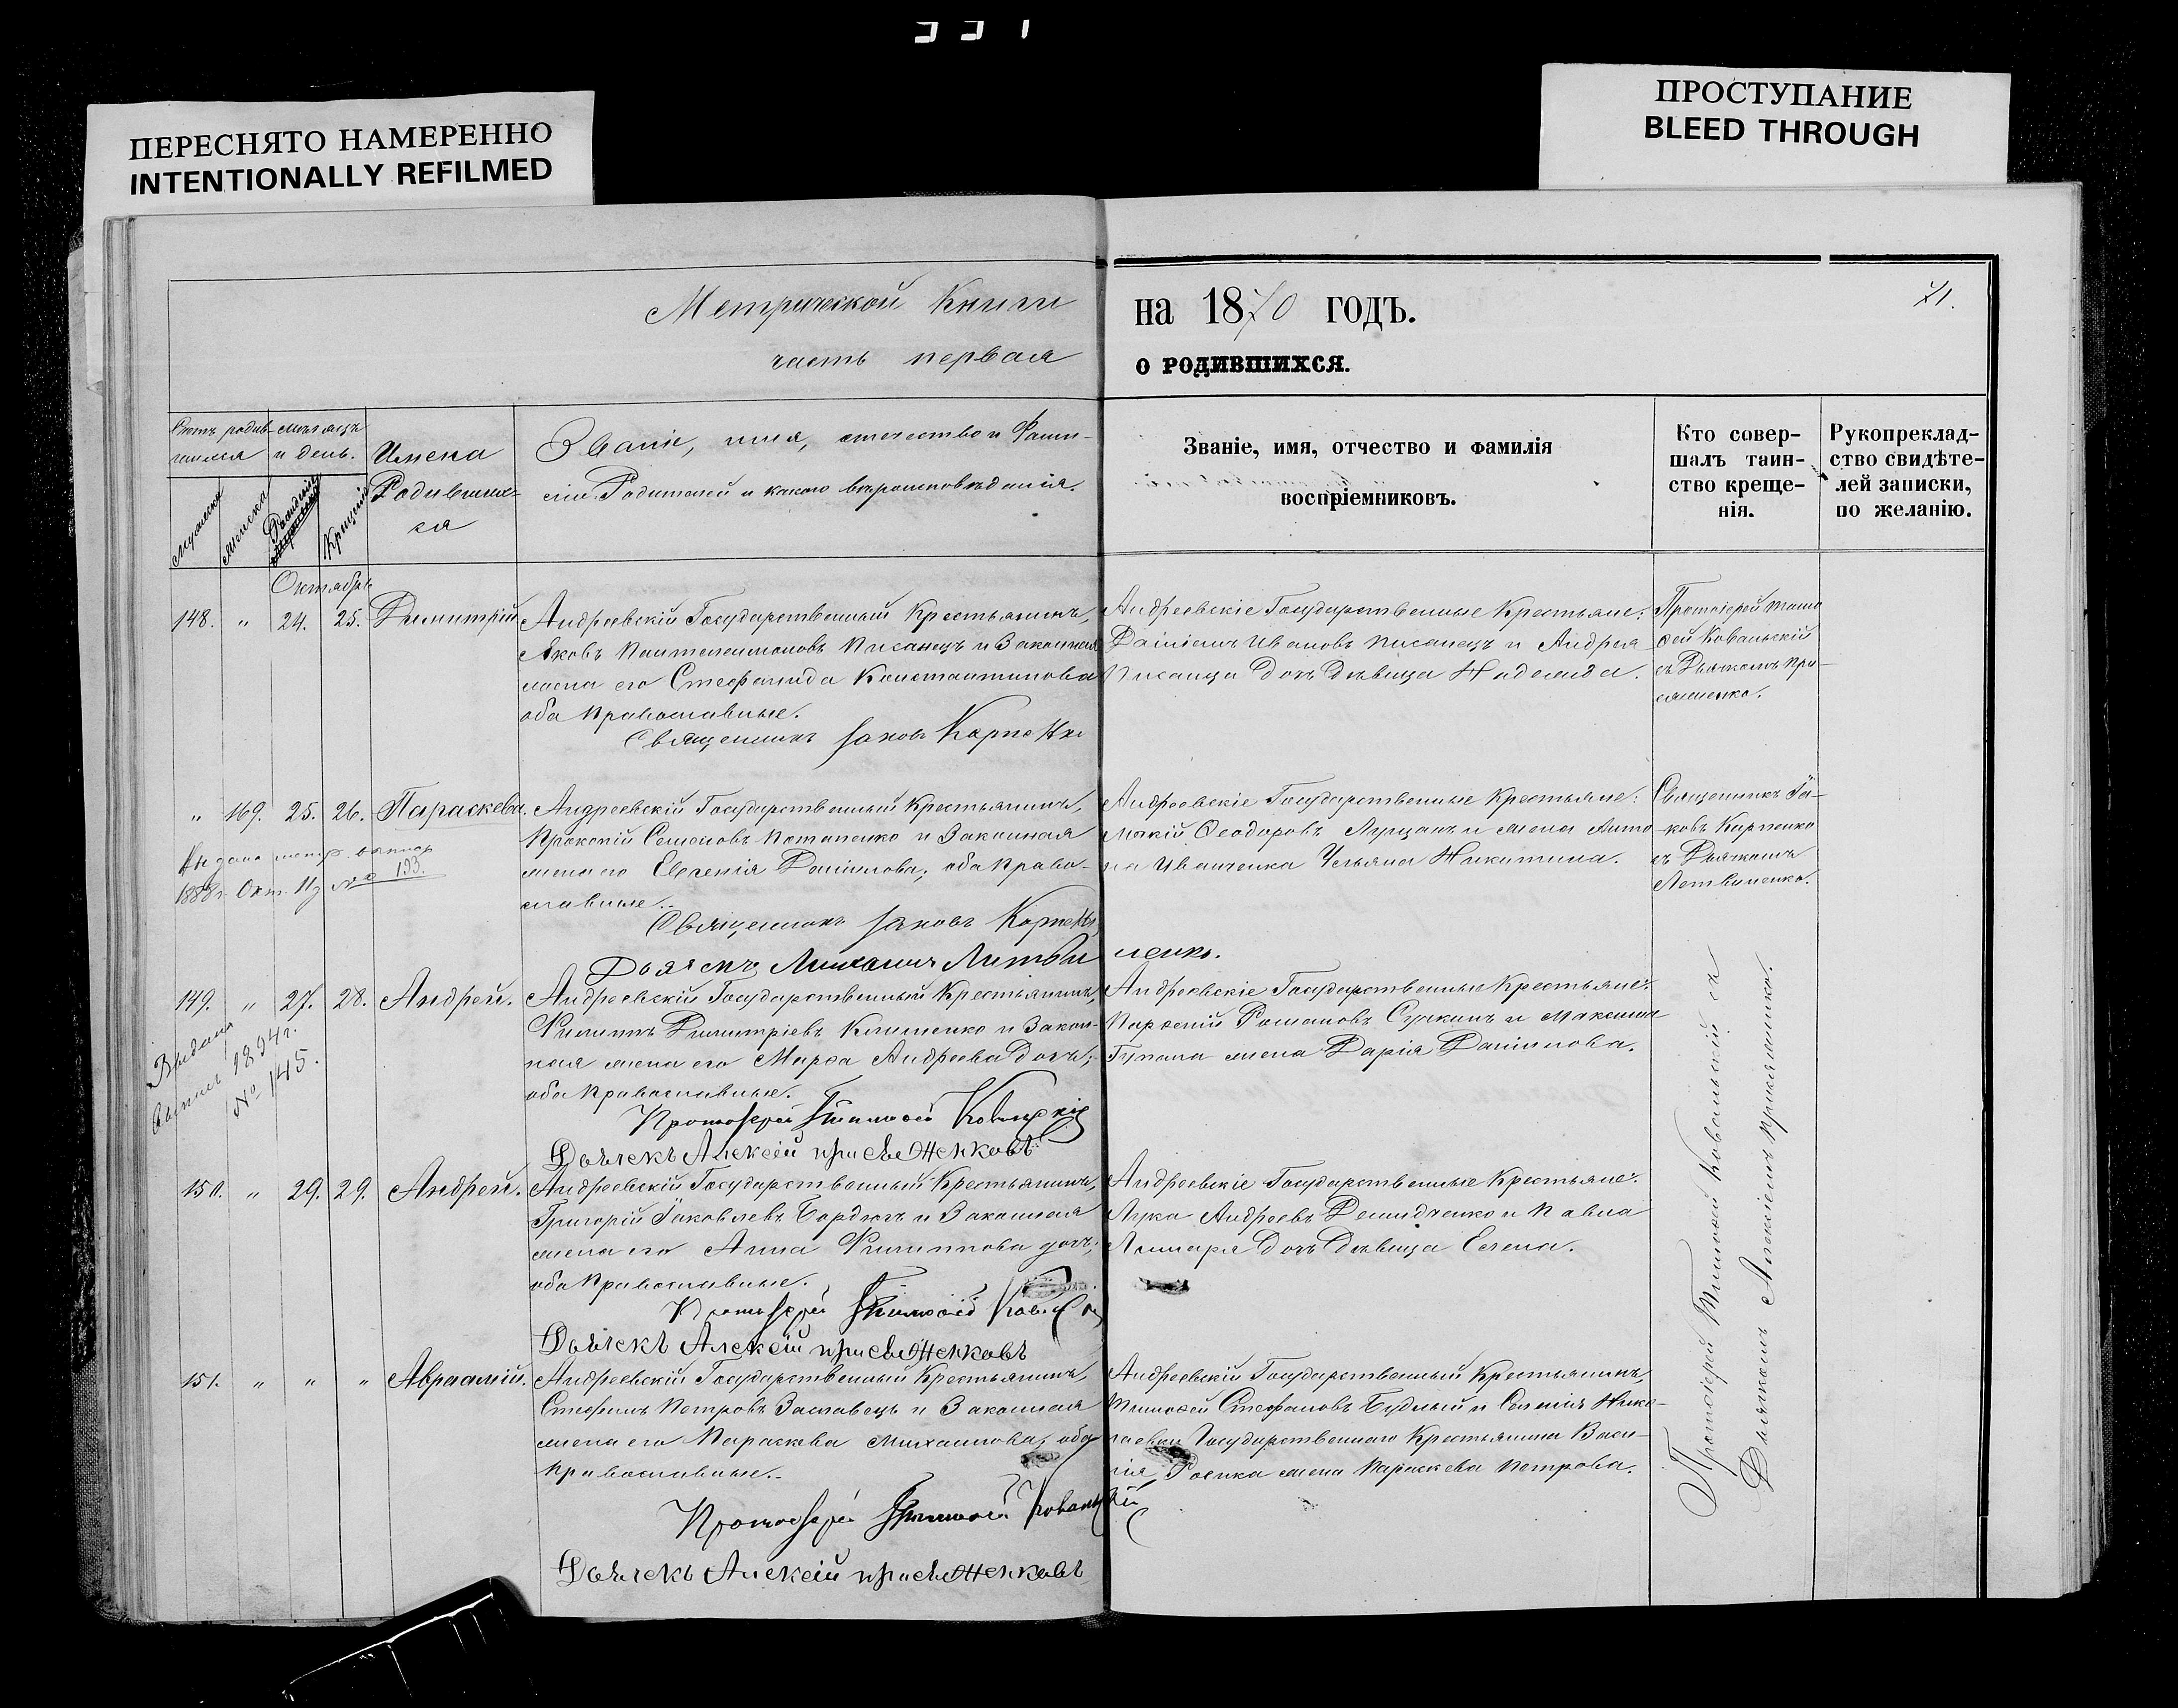 331
ПЕРЕСНЯТО НАМЕРЕННО
INTENTIONALLY REFILMED
ПРОСТУПАНИЕ
BLEED THROUGH
Метрической Книги
часть первая
на 1870 годъ.
о родившихся.
71.
Счетъ родив-
шихся
мѣсяцъ
и день.
Мужеска
Женска
Рожденія
Крещенія
Имена
Родивших-
ся
Званіе, имя, отчество и Фами-
ліи Родителей и какого вѣроисповѣданія.
Званіе, имя, отчество и фамилія
воспріемниковъ.
Кто совер-
шалъ таин-
ство креще-
нія.
Рукопреклад-
ство свидѣте-
лей записки,
по желанію.
Октябрь
148. " 24. 25. Димитрій
Андреевскій Государственный Крестьянинъ,
Яковъ Пантелеимоновъ Писанецъ и Законная
жена его Стефанида Константинова
оба православные.
Священникъ Іаковъ Карпенко
Андреевскіе Государственные Крестьяне:
Даніилъ Ивановъ Писанецъ и Андрея
Писанца дочь Дѣвица
Протоіерей Тимо
ѳей Ковальскій
съ Дьячкомъ При
" 169. 25. 26. Параскева.
Андреевскій Государственный Крестьянинъ,
Прокопій Семеновъ Потапенко и Законная
жена его Евгенія Даніилова, оба право-
славные.
Священникъ Іаковъ Карпенко
Дьячекъ Михаилъ Литвиненко.
Андреевскіе Государственные Крестьяне:
Ѳеодоровъ и жена Анто
на Иванченка Ульяна Никитина.
Священникъ Іа-
ковъ Карпенко
съ Дьячкомъ
Литвиненко.
Выдана метр.
1888 г. Окт. 11 № 193.
149. " 27. 28. Андрей.
Андреевскій Государственный Крестьянинъ,
Филиппъ Димитріевъ Клименко и Закон-
ная жена его Марѳа Андреева дочь;
оба православные.
Протоіерей Тимоѳей Ковальскій
Дьячекъ Алексій
Андреевскіе Государственные Крестьяне:
Парѳеній Романовъ и Максима
жена Дарія Даніилова.
Выдана
1894 г.
№ 145.
150. " 29. 29. Андрей.
Андреевскій Государственный Крестьянинъ,
Григорій Іаковлевъ и Законная
жена его Анна Филиппова дочь;
оба православные.
Протоіерей Тимоѳей Ковальскій
Дьячекъ Алексій
Андреевскіе Государственные Крестьяне:
Лука Андреевъ Демидченко и Павла
дочь Дѣвица Елена.
151. " " " Авраамій.
Андреевскій Государственный Крестьянинъ,
Стефанъ Петровъ Заставецъ и Законная
жена его Параскева Михаилова, оба
православные.
Протоіерей Тимоѳей Ковальскій
Дьячекъ Алексій
Андреевскій Государственный Крестьянинъ,
Тимоѳей Стефановъ и
Государственнаго Крестьянина Васи-
лія жена Параскева Петрова.
Протоіерей Тимоѳей Ковальскій съ
Дьячкомъ Алексіемъ